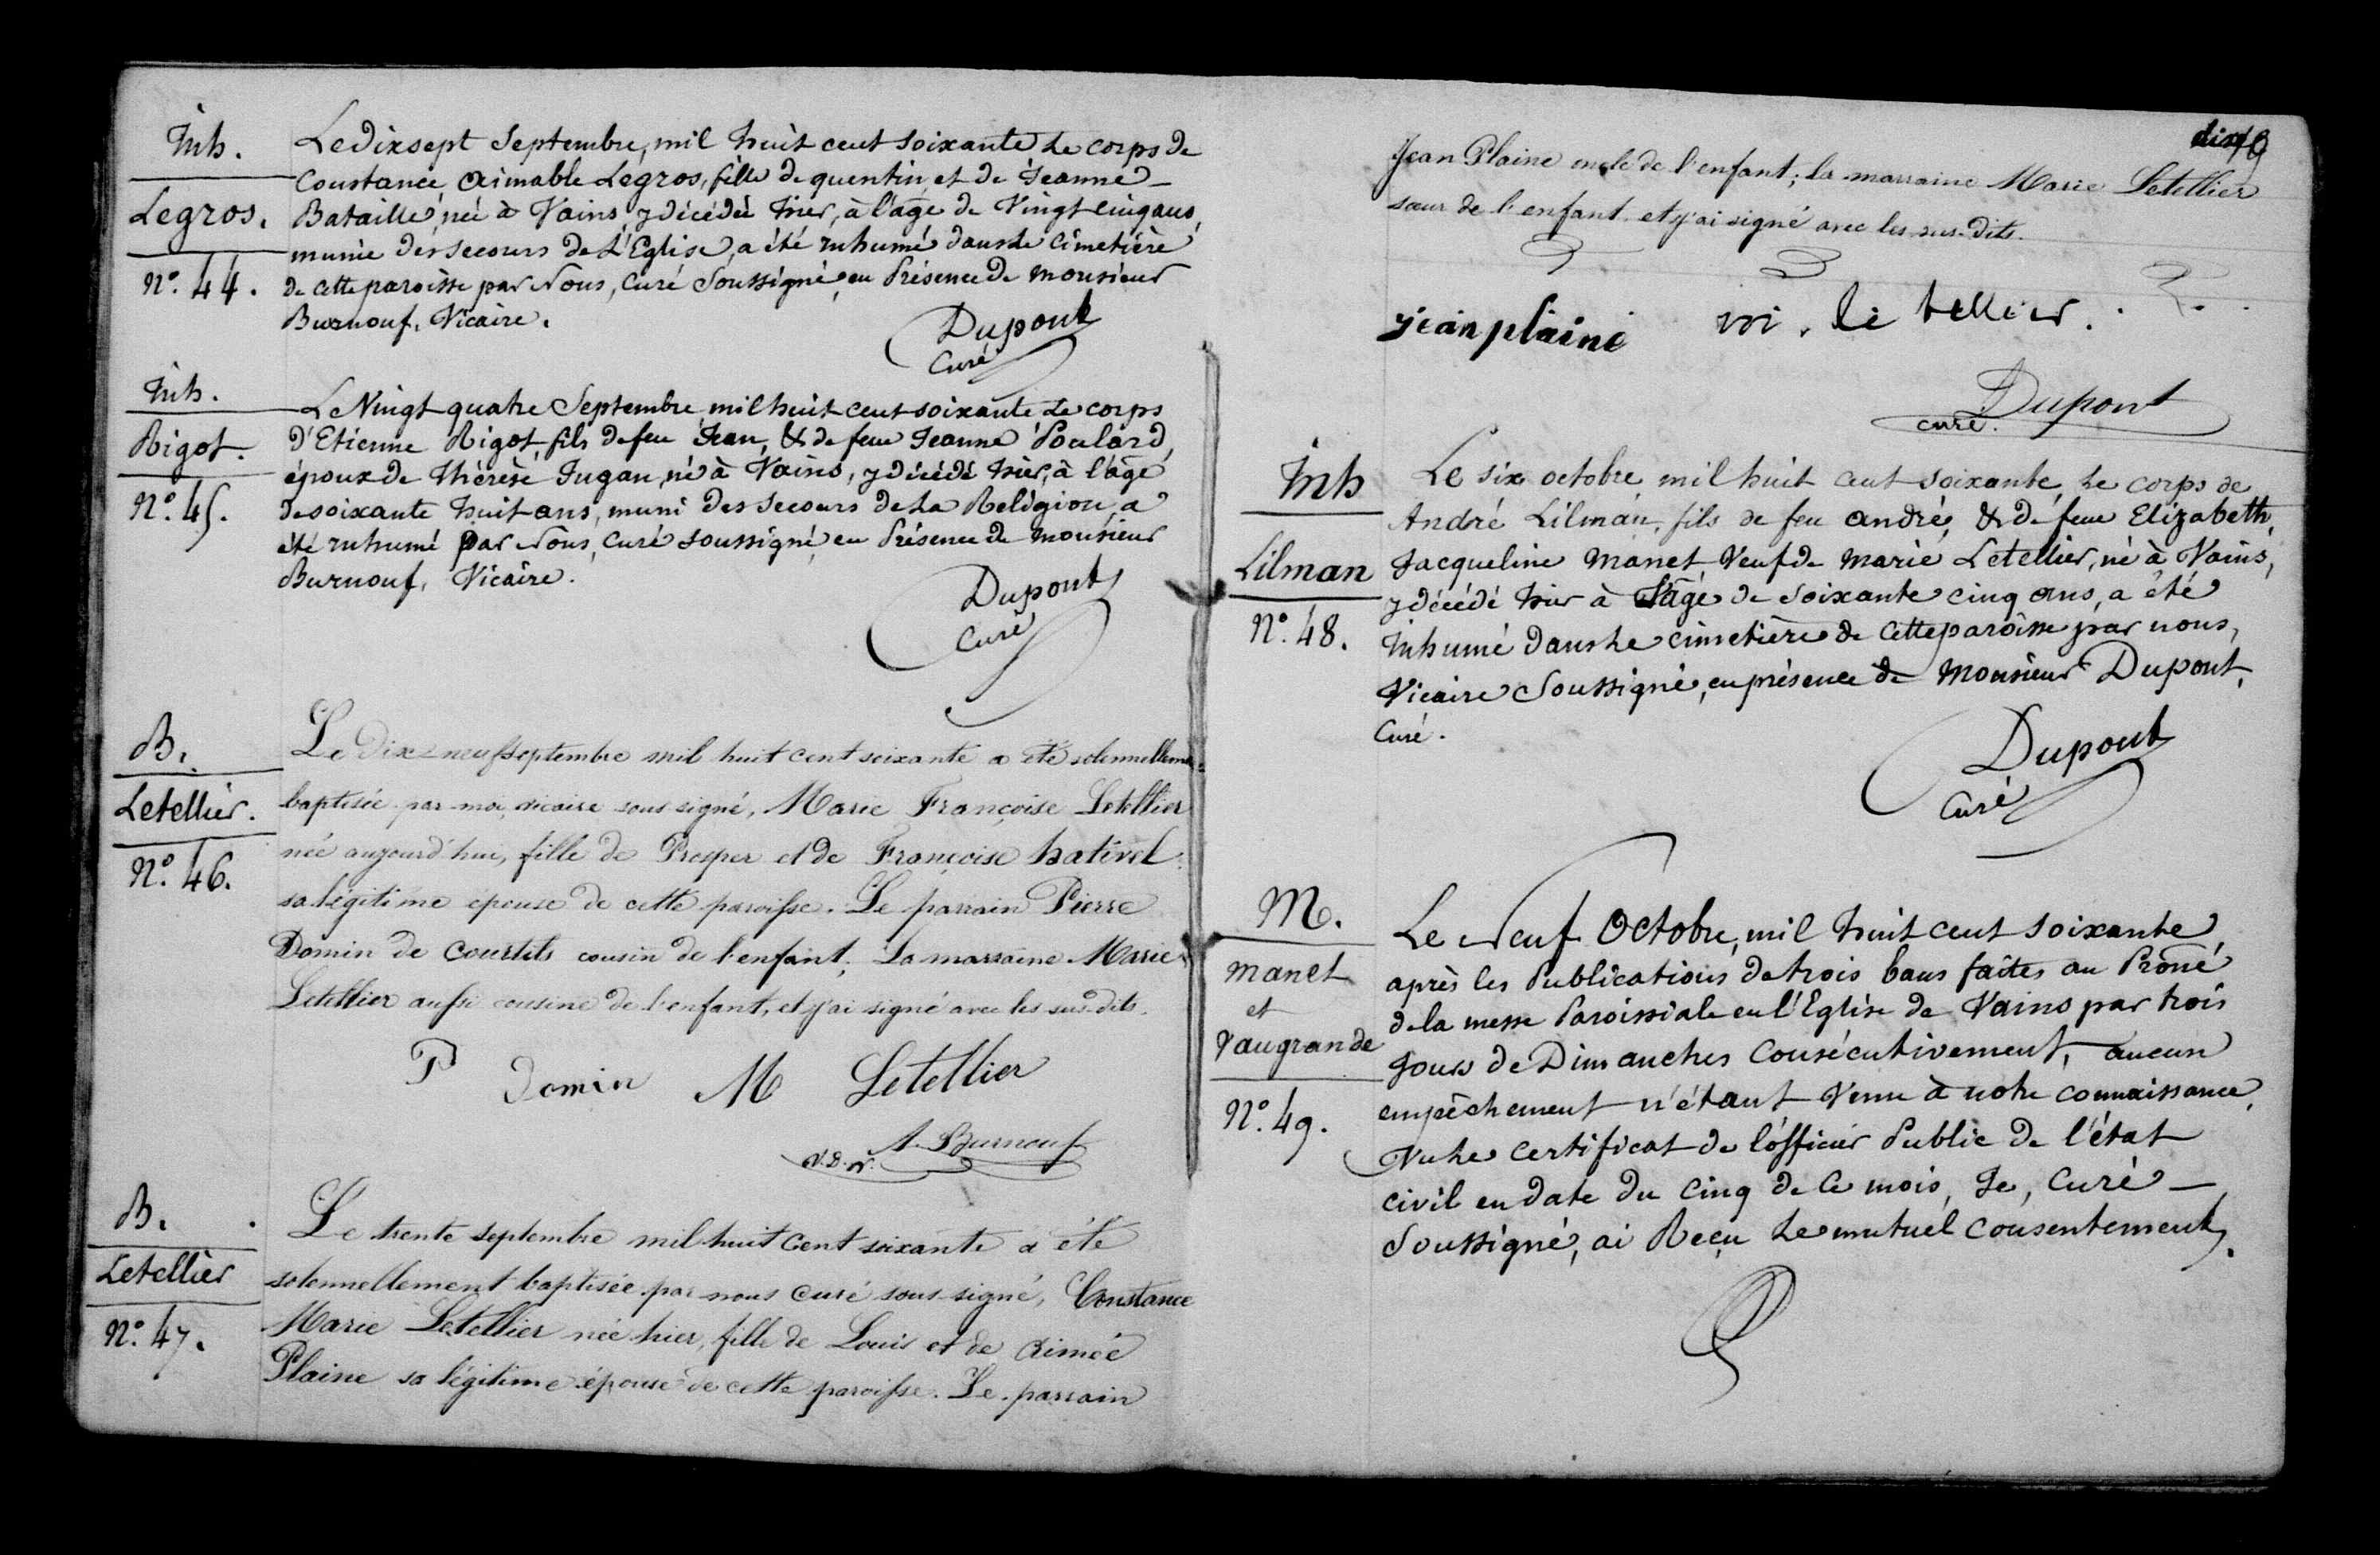 Inh.
Legros.
N.º 44.
Le dix sept Septembre, mil huit cent soixante Le corps de
Constance Aimable Legros, fille de quentin et de Jeanne
Bataille, née à Vains y décédée hier, à l'age de Vingt cinq ans,
munie des secours de L'Eglise, a été inhumé dans le Cimetière
de cette paroisse par Nous, Curé Soussigné, en Présence de monsieur
Burnouf, Vicaire.
Dupont
Curé
Inh.
Rigot.
N.º 45.
Le Vingt quatre Septembre mil huit cent soixante Le corps
d'Etienne Rigot, fils de feu Jean, & de feue Jeanne Poulard,
époux de Thérèse Jugan, né à Vains, y décédé hier, à l'âge
de soixante huit ans, muni des secours de La Religion, a
été inhumé par Nous, Curé soussigné, en Présence de monsieur
Burnouf, Vicaire.
Dupont
Curé
B.
Letellier.
N.º 46.
Le dix-neuf septembre mil huit cent soixante a été solennelleme
baptisée par moi, vicaire sous signé, Marie Françoise Letellier
née aujourd'hui, fille de Prosper et de Françoise hativel
sa légitime épouse de cette paroisse. Le parrain Pierre
Domin de Courtils cousin de l'enfant; La marraine Marie
Letellier aussi cousine de l'enfant, et j'ai signé avec les sus-dits.
P Domin M Letellier
A. Burnouf
B.
Letellier
N.º 47.
Le trente septembre mil huit cent soixante a été
solennellement baptisée par nous curé sous-signé, Constance
Marie Letellier née hier, fille de Louis et de Aimée
Plaine sa légitime épouse de cette paroisse. Le parrain
Jean Plaine oncle de l'enfant; la marraine Marie Letellier
sœur de l'enfant et j'ai signé avec les sus-dits.
jean plaine m. le tellier.
Dupont
curé.
Inh
Lilman
N.º 48.
Le six octobre mil huit cent soixante, Le corps de
André Lilman, fils de feu André, & de feue Elizabeth,
Jacqueline Manet, Veuf de Marie Letellier, né à Vains,
y décédé hier à l'âge de soixante cinq ans, a été
Inhumé dans Le cimetière de cette paroisse par nous,
Vicaire Soussigné, en présence de Monsieur Dupont,
Curé.
Dupont
Curé
M.
manet
et
Vaugrande
N.º 49.
Le Neuf Octobre, mil huit cent soixante,
après les Publications de trois bans faites au Prône
de la messe Paroissiale en l'Eglise de Vains par trois
Jours de Dimanches Consécutivement, aucun
empêchement n'étant Venu à notre connaissance,
Vu Le Certificat de l'officier Public de l'état
civil en date du Cinq de Ce mois, Je, Curé
Soussigné, ai Reçu Le mutuel Consentement,